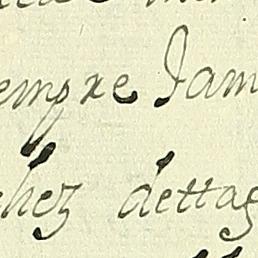 empre Jam
hez dettag